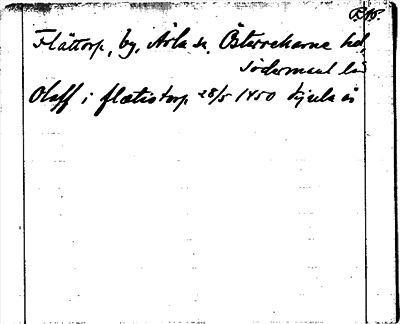 Flättorp, by, Ärla sn. Österrekarne hd,
Södermanl län
Olaff i flætistorp 28/5 1450